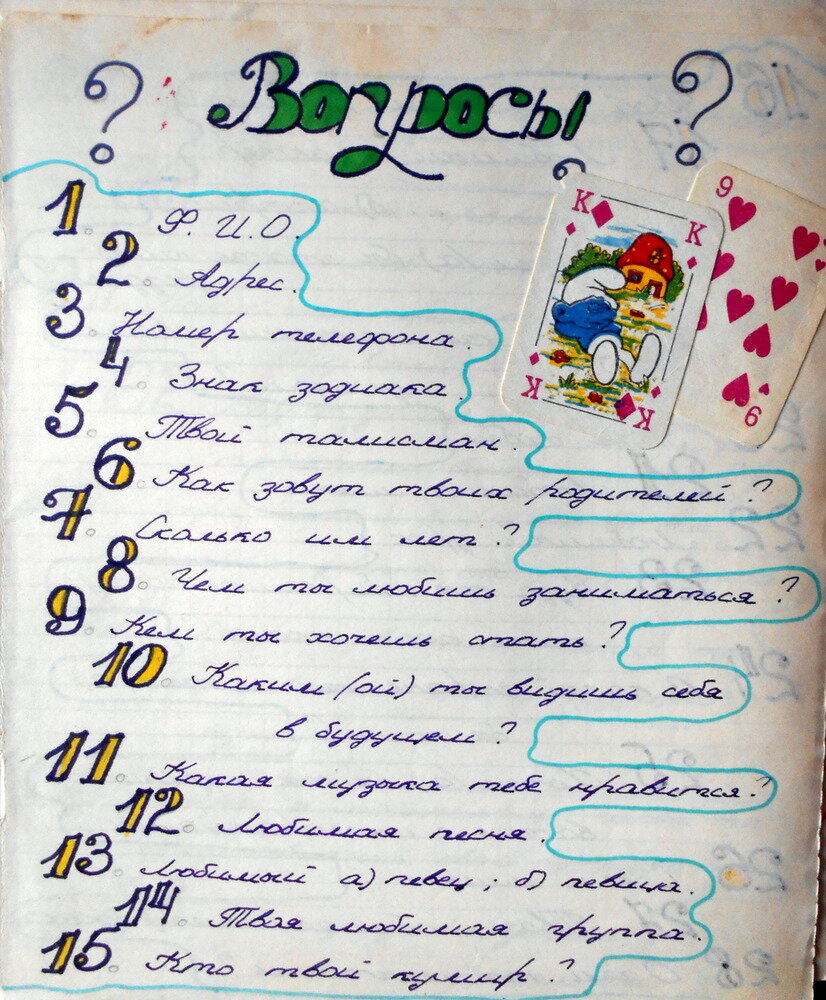 ? Вопросы ?
1. Ф. И. О.
2. Адрес.
3. Номер телефона.
4. Знак зодиака.
5. Твой талисман.
6. Как зовут твоих родителей?
7. Сколько им лет?
8. Чем ты любишь заниматься?
9. Кем ты хочешь стать?
10. Каким (ой) ты видишь себя
в будущем?
11. Какая музыка тебе нравится?
12. Любимая песня.
13. Любимый а) певец; б) певица.
14. Твоя любимая группа.
15. Кто твой кумир?
K K
K K
9
9